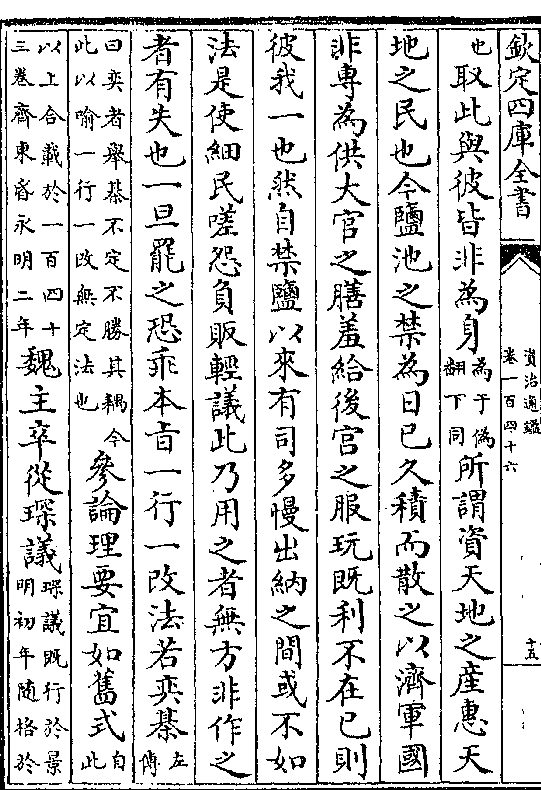 欽定四庫全書
資治通鑑
卷一百四十六
十五
也取此與彼皆非為身為于偽翻下同所謂資天地之産惠天
地之民也今鹽池之禁為日已久積而散之以濟軍國
非專為供大官之膳羞給後宫之服玩既利不在已則
彼我一也然自禁鹽以來有司多慢出納之間或不如
法是使細民嗟怨負販輕議此乃用之者無方非作之
者有失也一旦罷之恐乖本㫖一行一改法若奕棊左傳
曰奕者舉棊不定不勝其耦今此以喻一行一改無定法也參論理要宜如舊式自此
以上合載於一百四十三巻齊東昏永明二年魏主卒從琛議琛議既行於景明初年随格於